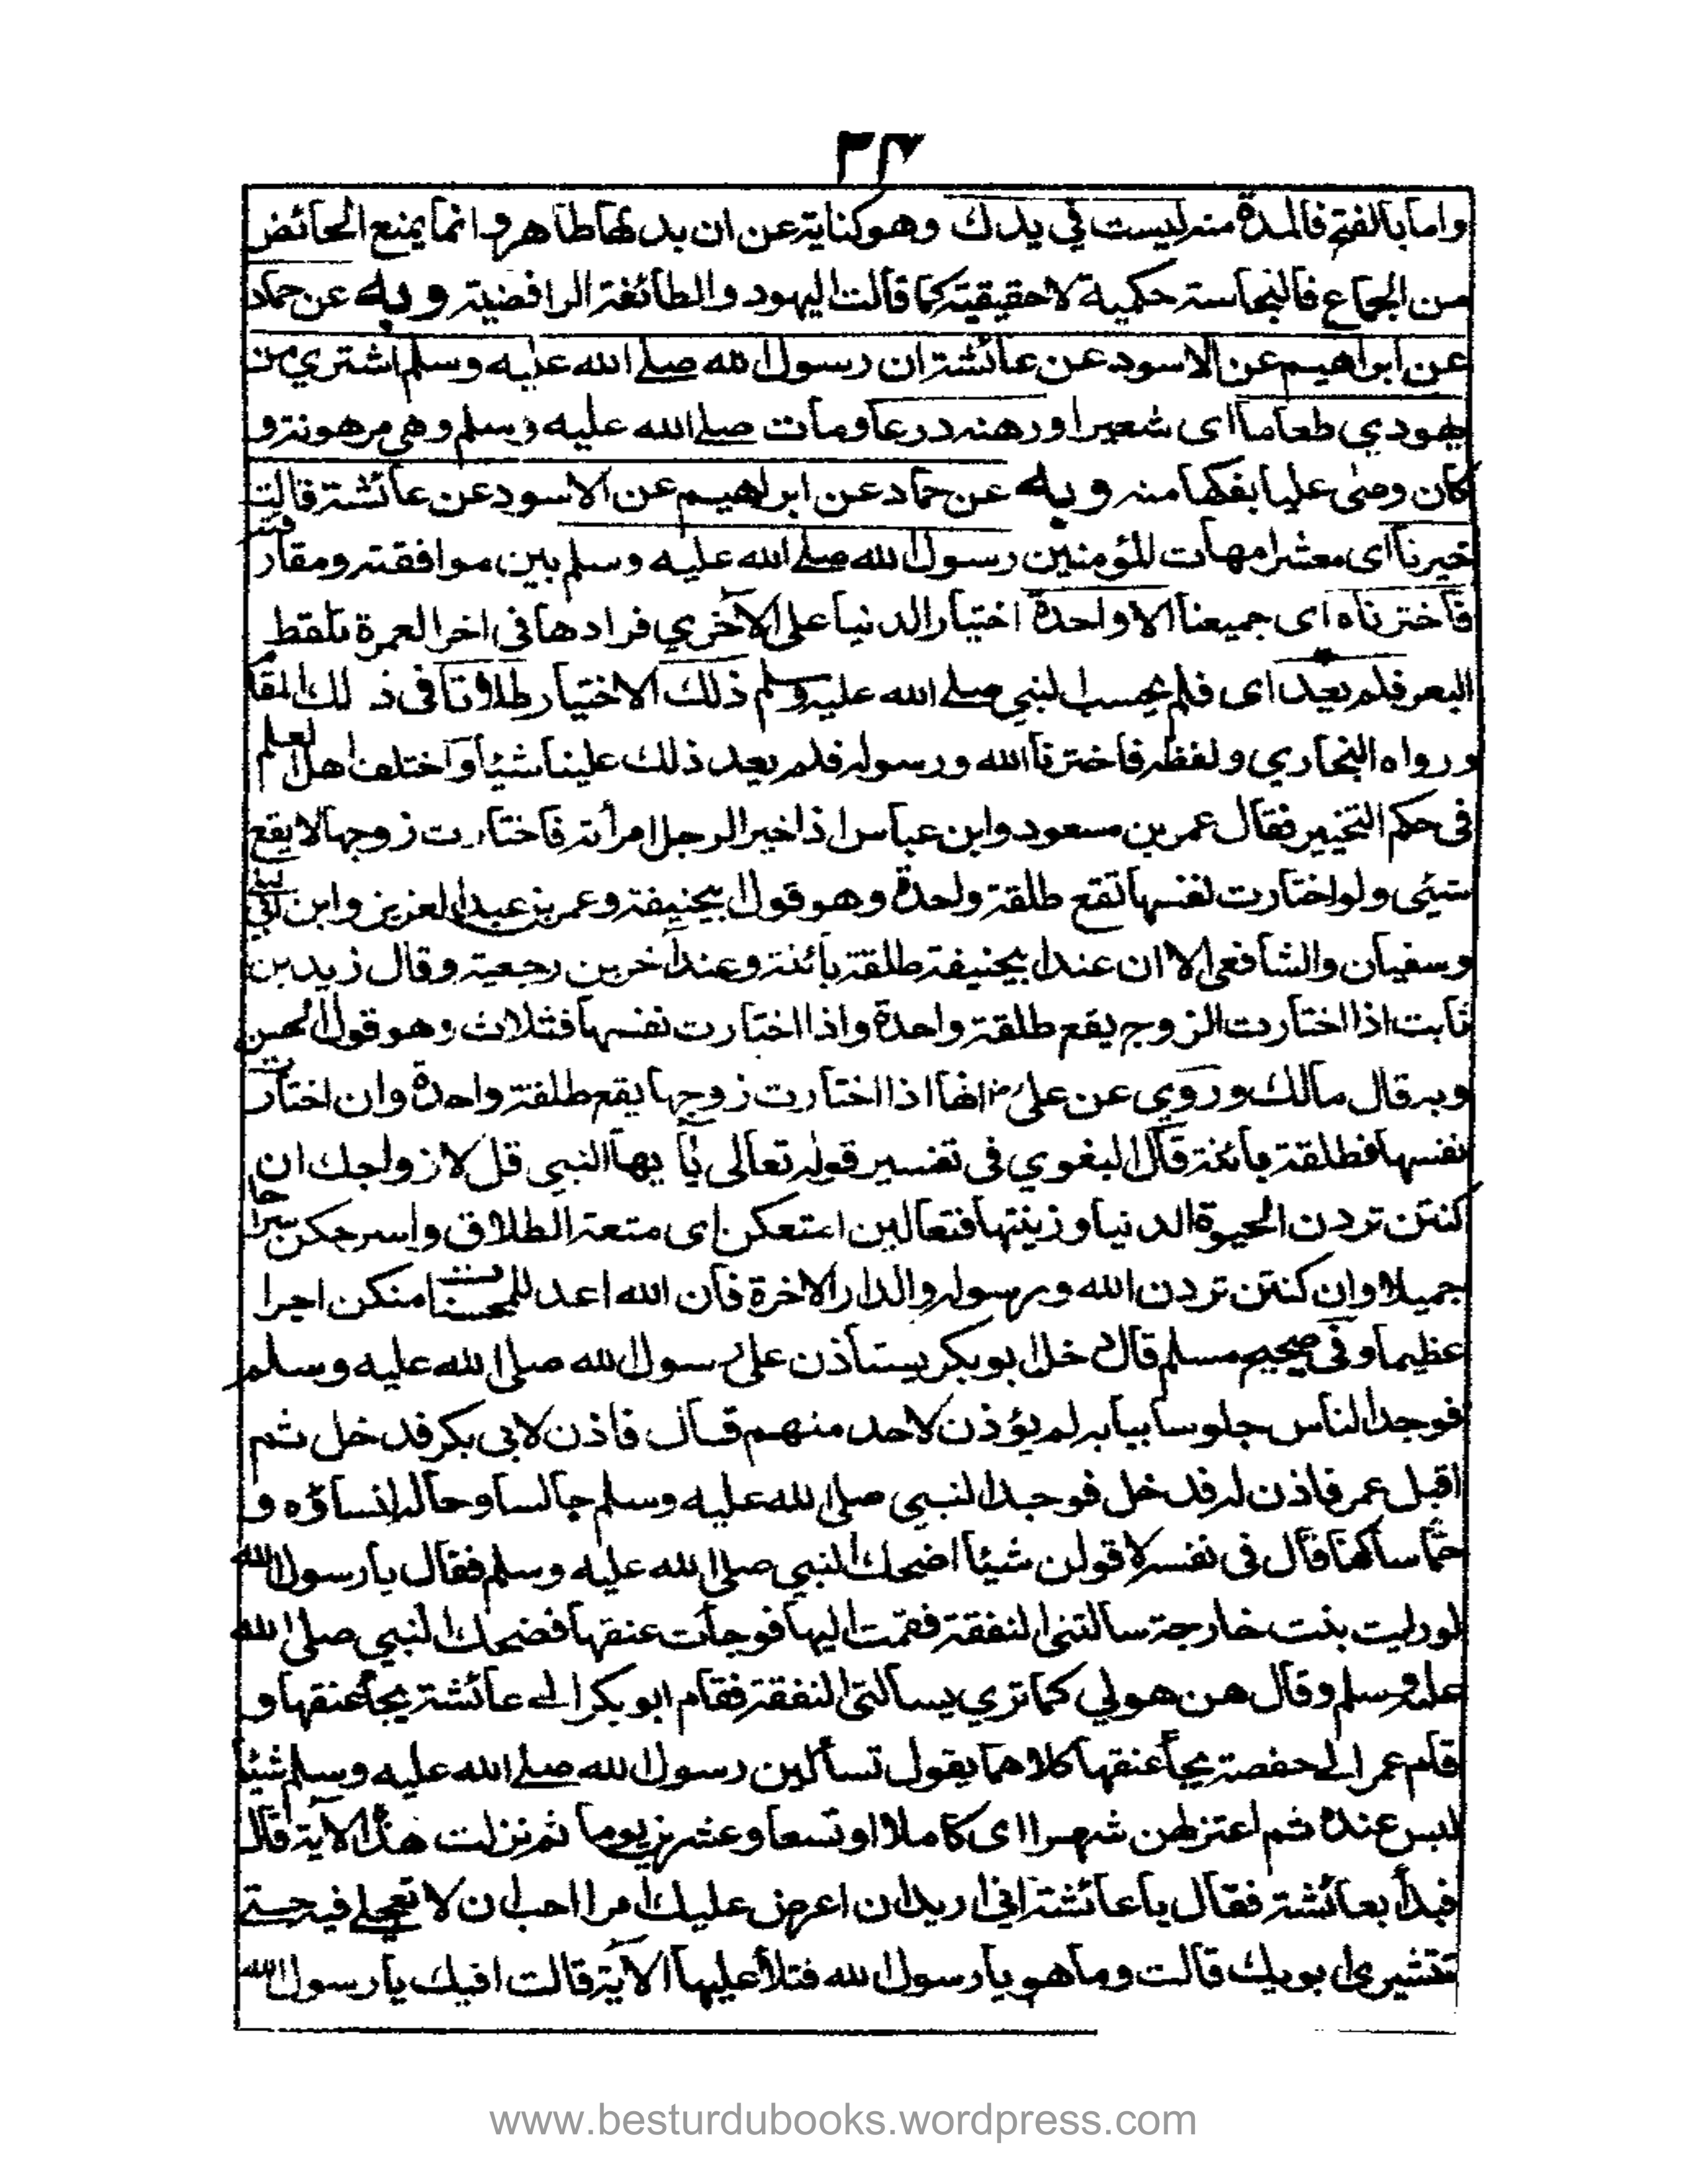 ٣٧
واما بالفتح فالمدة منه ليست في يدك وهو كناية عن ان بدنها طاهر وانما يمنع الحائض
من الجماع فالنجاسة حكمية لا حقيقية كما قالت اليهود والطائفة الرافضية وبه عن حماد
عن ابراهيم عن الاسود عن عائشة ان رسول الله صلى الله عليه وسلم اشتري من
يهودي طعاما اى شعيرا ورهنه درعا ومات صلى الله عليه وسلم وهي مرهونة و
كان وصى عليا بفكها منه وبه عن حماد عن ابراهيم عن الاسود عن عائشة قالت
خيرنا اى معشر امهات المؤمنين رسول الله صلى الله عليه وسلم بين موافقته ومفارقته
فاخترناه اى جميعنا الا واحدة اختيار الدنيا على الاخري فرادها فى اخر العمرة تلقط
البعر فلم يعد اى فلم يحسب النبي صلى الله عليه وسلم ذلك الاختيار طلاقا فى ذلك المقا
ورواه البخاري ولفظه فاخترنا الله ورسوله فلم يعد ذلك علينا شيئا واختلف اهل العلم
فى حكم التخيير فقال عمر بن مسعود وابن عباس اذا خير الرجل امرأته فاختارت زوجها لا يقع
شيئى ولو اختارت نفسها تقع طلقة واحدة وهو قول ابيحنيفة وعمر بن عبد العزيز وابن ابي ليلى
وسفيان والشافعى الا ان عند ابيحنيفة طلقة بائنة وعند اخرين رجعية وقال زيد بن
ثابت اذا اختارت الزوج يقع طلقة واحدة واذا اختارت نفسها فثلاث وهو قول الحسن
وبه قال مالك وروي عن على رض انها اذا اختارت زوجها يقع طلقة واحدة وان اختارت
نفسها فطلقة بائنة قال البغوي فى تفسير قوله تعالى يا يها النبي قل لازواجك ان
كنتن تردن الحيوة الدنيا وزينتها فتعالين امتعكن اى متعة الطلاق واسرحكن سراحا
جميلا وان كنتن تردن الله ورسوله والدار الاخرة فان الله اعد للمحسنات منكن اجرا
عظيما وفى صحيح مسلم قال دخل ابو بكر يستأذن على رسول الله صلى الله عليه وسلم
فوجد الناس جلوسا ببابه لم يؤذن لاحد منهم قال فاذن لابى بكر فدخل ثم
اقبل عمر فاذن له فدخل فوجد النبي صلى الله عليه وسلم جالسا وحاله نساؤه و
ساكنا قال فى نفسه لا قولن شيئا اضحك النبي صلى الله عليه وسلم فقال يا رسول الله
لو رايت بنت خارجة سالتنى النفقة فقمت اليها فوجات عنقها فضحك النبي صلى الله
عليه وسلم وقال هن حولي كما تري يسالنى النفقة فقام ابو بكر الى عائشة يجأ عنقها و
قام عمر الى حفصة يجأ عنقها كلاهما يقول تسألين رسول الله صلى الله عليه وسلم شيئا
ليس عنده ثم اعتزلهن شهرا اى كاملا او تسعا وعشرين يوما ثم نزلت هذه الاية قال
فبدأ بعائشة فقال يا عائشة انى اريد ان اعرض عليك امرا احب ان لا تعجلى فيه حتى
تشيرى ابويك قالت وما هو يا رسول الله فتلا عليها الاية قالت افيك يا رسول الله
www.besturdubooks.wordpress.com